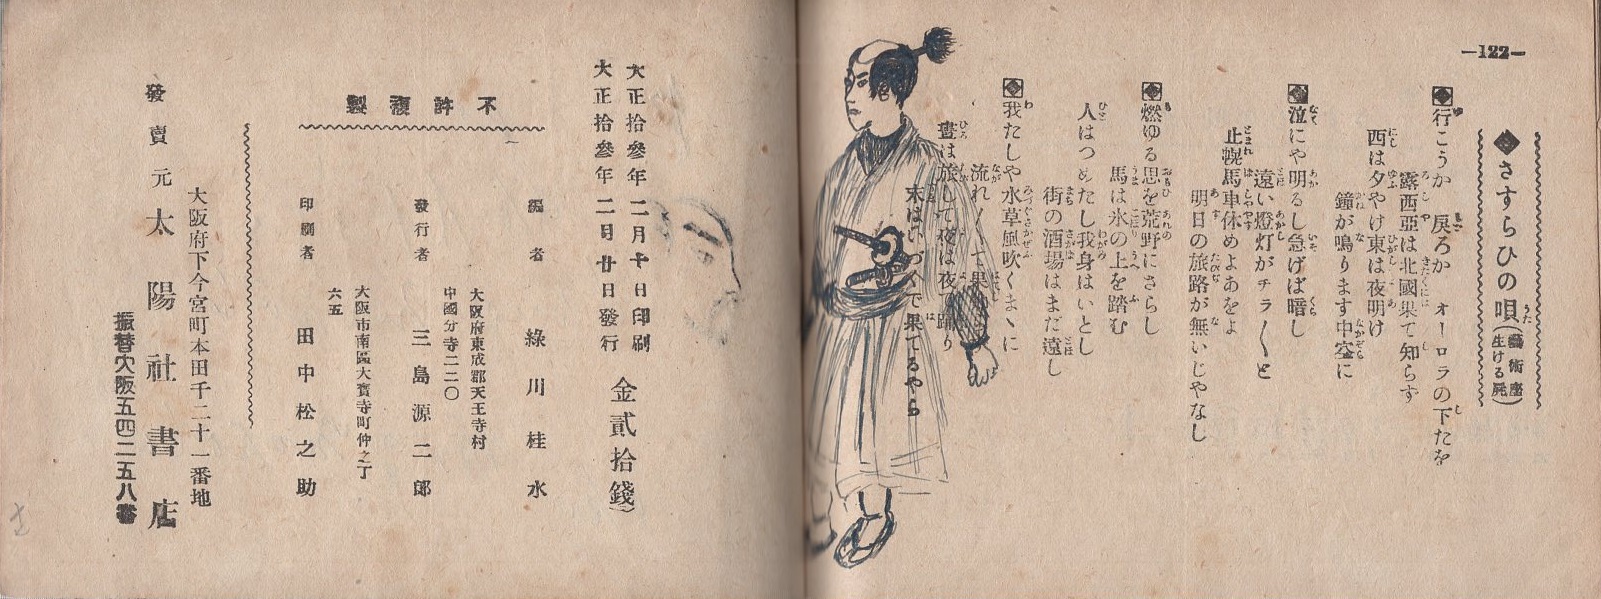 —122—
◆さすらひの唄(藝術座 生ける屍)
行こうか 戻ろか オーロラの下たを
露西亞は北國果て知らず
西は夕やけ東は夜明け
鐘が鳴ります中空に
泣にや明るし急げば暗し
遠い燈灯がチラ〱と
止れ幌馬車休めよあをよ
明日の旅路が無いじやなし
燃ゆる思を荒野にさらし
馬は氷の上を踏む
人はつめたし我身はいとし
街の酒場はまだ遠し
我たしや水草風吹くまゝに
流れ〱て果
晝は旅して夜は夜で踊り
末はいづくで果てるやら
大正拾參年二月十日印刷
大正拾參年二月廿日發行
金貳拾錢
不許複製
編者 綠川桂水
大阪府東成郡天王寺村
中國分寺二二〇
發行者 三島源二郎
大阪市南區大寶寺町仲之丁
六五
印刷者 田中松之助
大阪府下今宮町本田千二十一番地
發賣元 太陽社書店
振替大阪五四二五八番